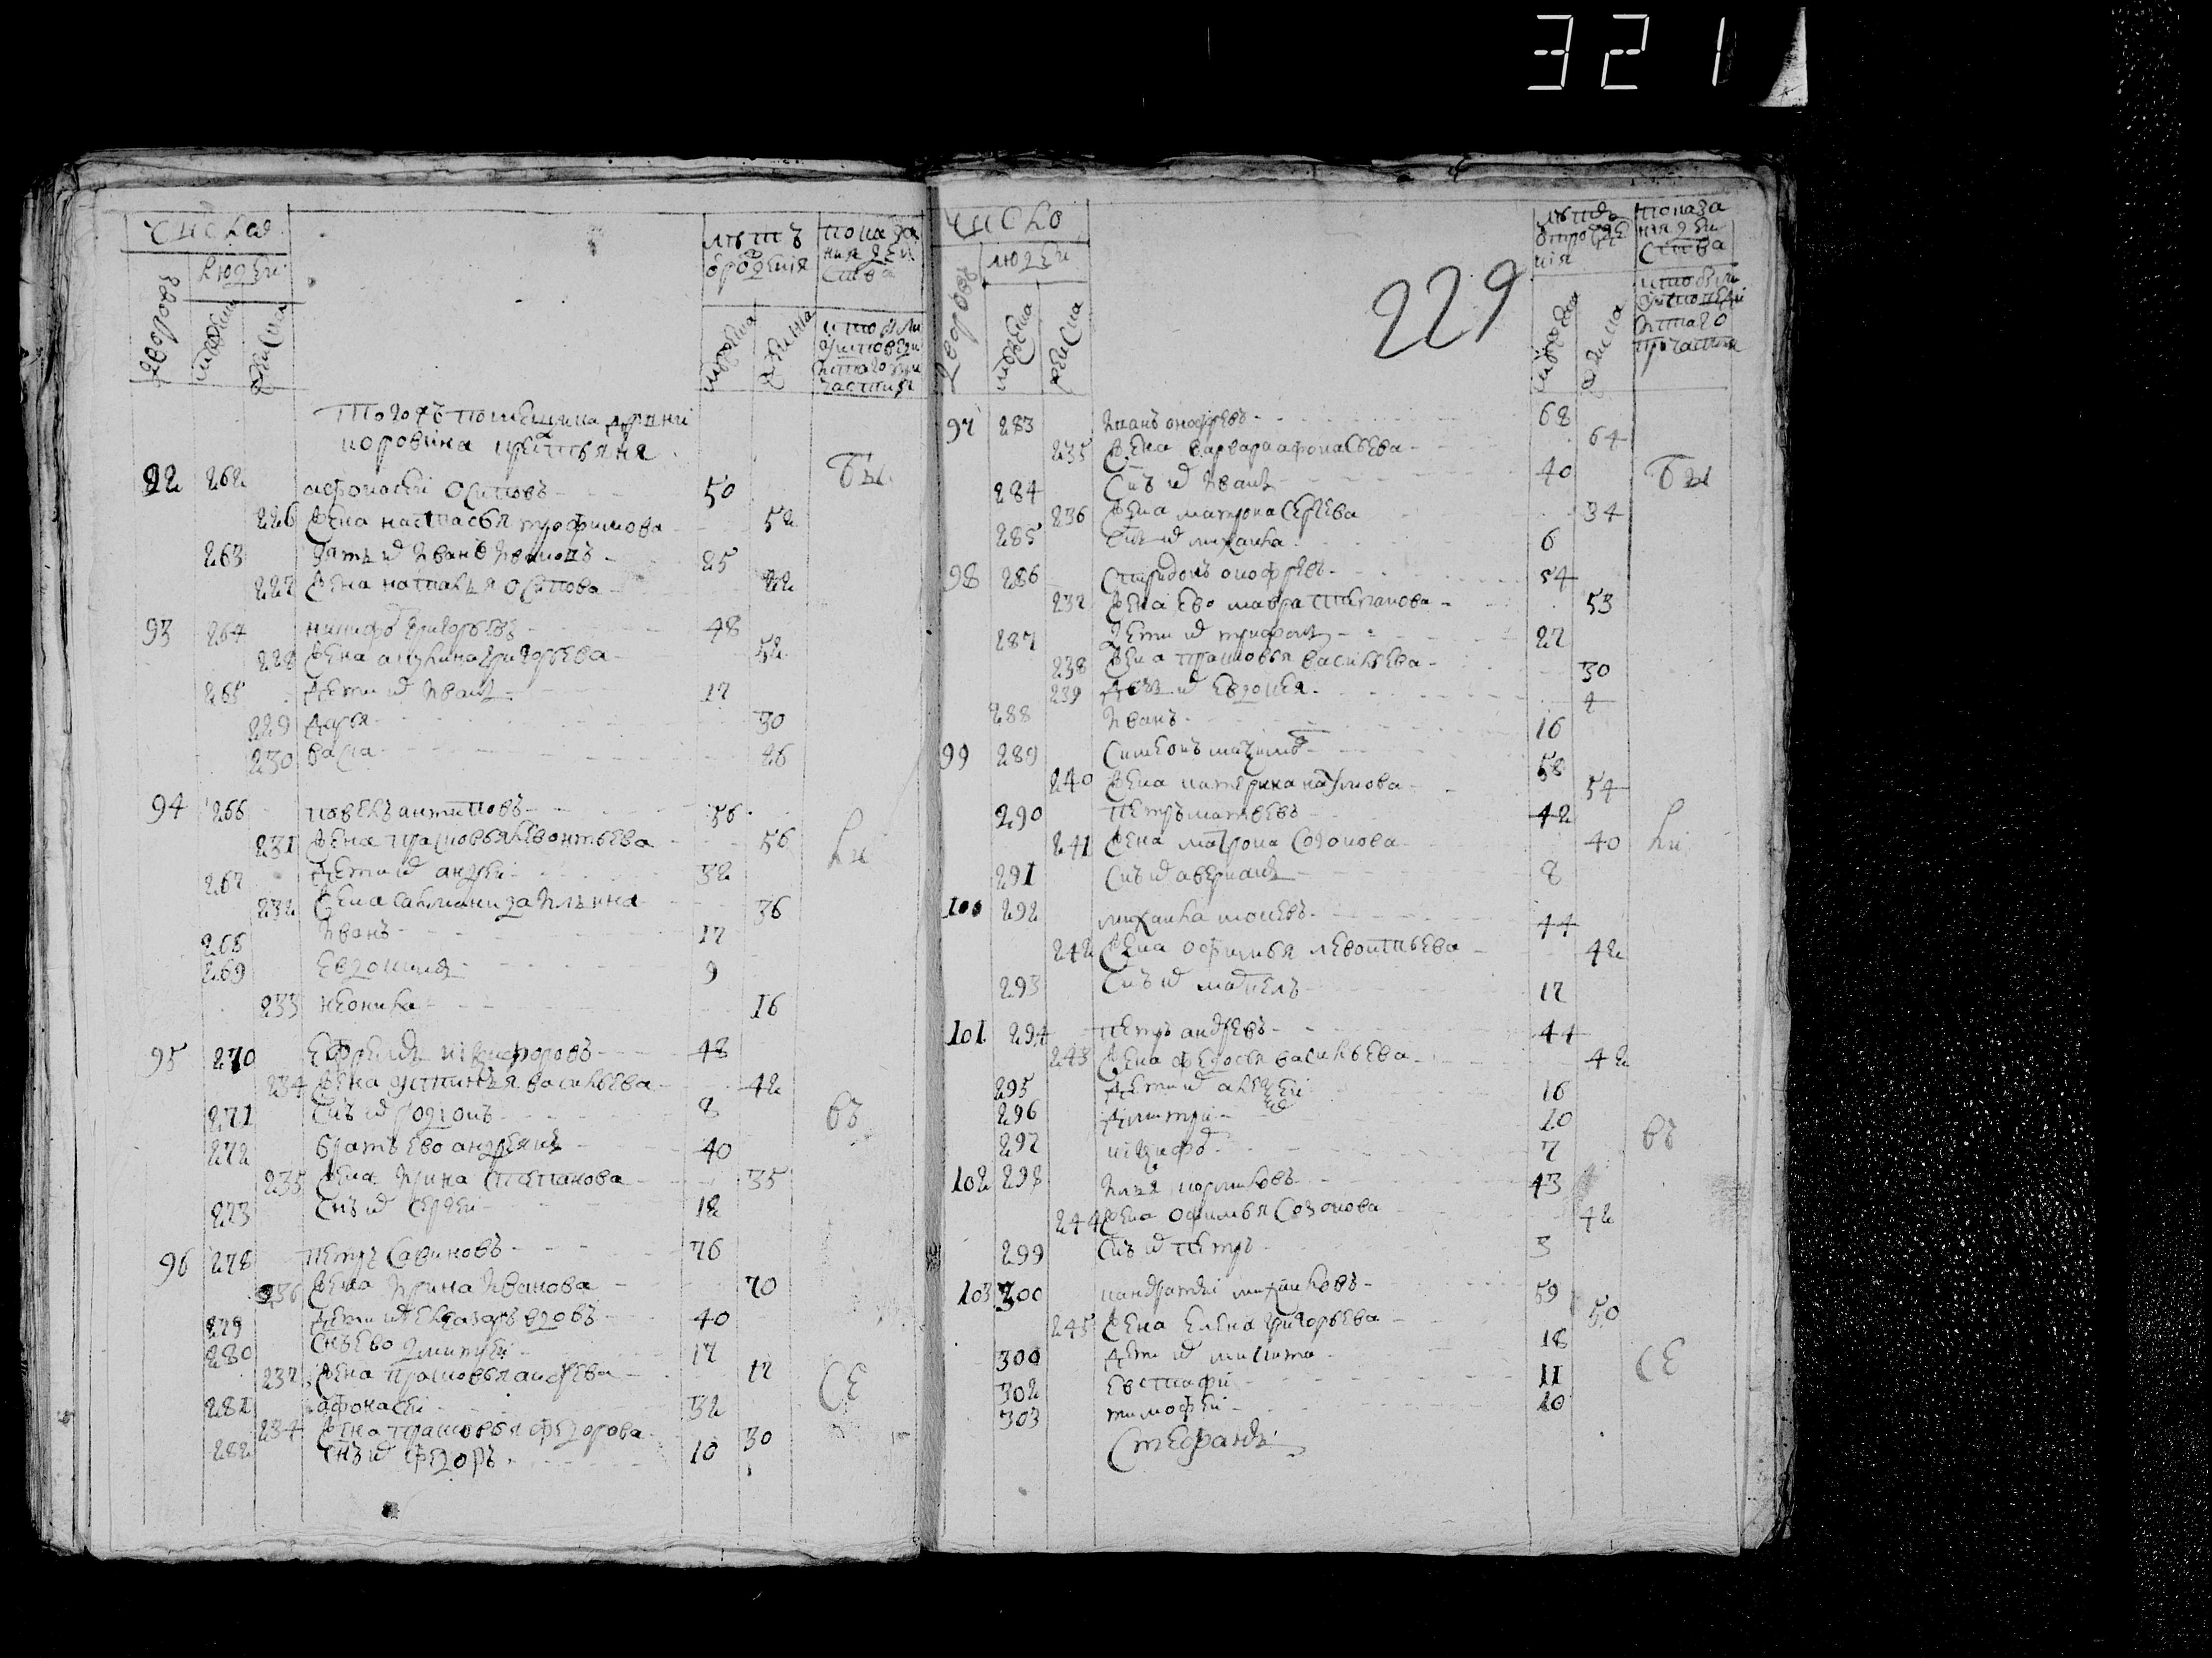 321
число
людей
дворовъ
мужска
женска
лѣтъ
ѿ рожденія
мужска
женска
показа
ния дей
ства
кто были
у исповеди
и с̃таго при
частия
Тогожъ помещика деревни
коровина крестьяня
92 262 афонасеи Осиповъ 50
226 жена настасья трофимова 52
263 зять иⷯ Иванъ Ивановъ 25
227 жена наталья Осипова 22
93 264 никифоⷬ григорьевъ 48
228 жена акулина григорьева 52
265 дети иⷯ Иванъ 17
229 дарья 30
230 васса 26
94 266 павелъ антиповъ 56
231 жена прасковья левонтьева 56
267 дети иⷯ андреи 32
232 жена саломанида Ильина 36
268 Иванъ 17
269 Евдокимъ 9
233 неонила 16
95 270 Ефремъ никифоровъ 48
234 жена устинья васильева 42
271 снъ иⷯ родионъ 8
272 братъ ево андреянъ 40
235 жена Ирина Степанова 35
273 снъ иⷯ сергеи 12
96 278 петръ Савиновъ 76
236 жена Ирина Иванова 70
279 дети иⷯ елеазаръ вдовъ 40
280 снъ ево дмитреи 17
237 жена прасковья андреева 17
281 афонасеи 32
234 жена прасковья федорова 30
282 снъ иⷯ федоръ 10
Бы
ли
въ
СЕ
число
людей
дворовъ
мужска
женска
лѣтъ
ѿ рожде
нія
мужска
женска
показа
ния дей
ства
кто были
у исповеди
и с̃таго
причастия
229
97 283 Иванъ онофревъ 68
235 жена варвара афонасьева 64
284 снъ иⷯ Иванъ 40
236 жена матрона Сергева 34
285 снъ иⷯ михаила 6
98 286 Спиридонъ онофревъ 54
237 жена Ево мавра Степанова 53
287 дети иⷯ трифонъ 27
238 жена прасковья васильева 30
239 дочь иⷯ евдокея 4
288 Иванъ 16
99 289 Симеонъ маѯимоⷡ 58
240 жена катерина наумова 54
290 петръ матвевъ 42
241 жена матрона Созонова 40
291 снъ иⷯ авериянъ 8
100 292 михаила мокевъ 44
242 жена офимья левонтьева 42
293 снъ иⷯ матвеи 17
101 294 петръ андревъ 44
243 жена федосья васильева 42
295 дети иⷯ алеѯеи 16
296 дмитреи 10
297 никифоⷬ 7
102 298 Илья корниловъ 43
244 жена офимья Созонова 42
299 снъ иⷯ петръ 3
103 300 кандратеи михаиловъ 59
245 жена Елена григорьева 50
300 дети иⷯ никита 18
302 Евстафеи 11
303 тимофеи 10
Стефанъ
Бы
ли
въ
СЕ